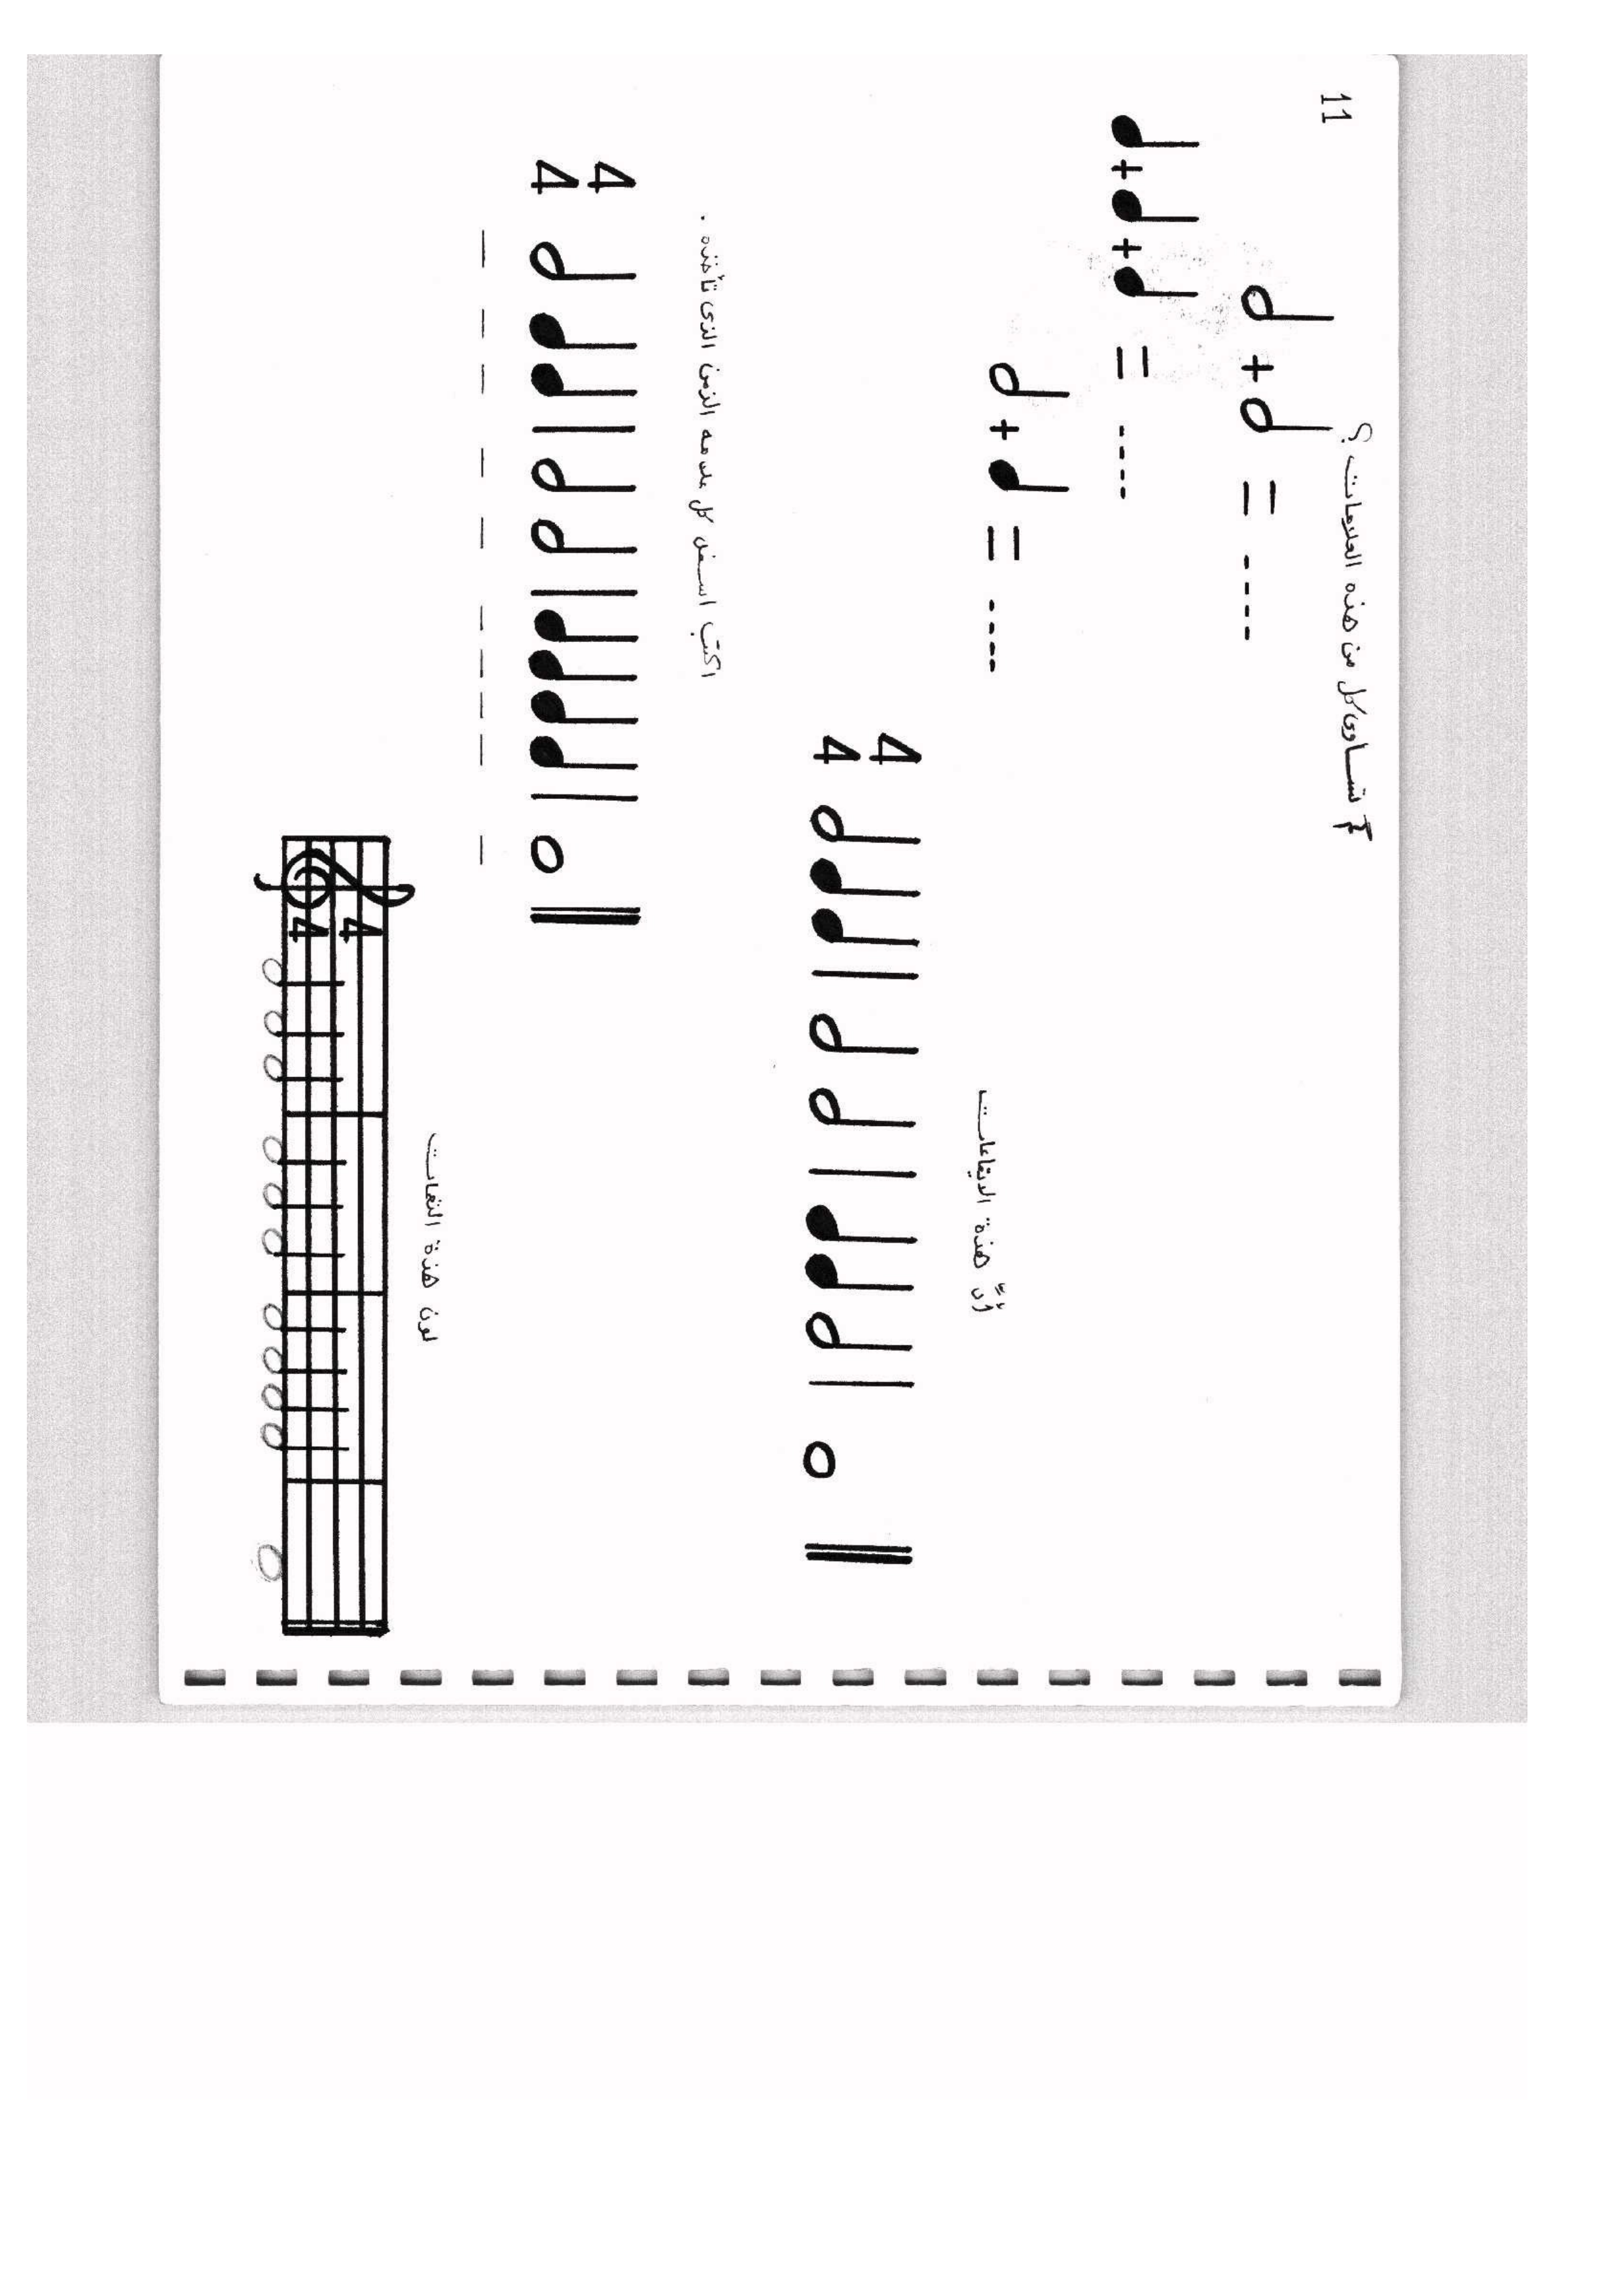 11
كم تساوى كل من هذه العلامات ؟
+ = ----
+ + = ----
+ = ----
أدِّ هذة الايقاعات
4
4
اكتب اسفل كل علامه الزمن الذى تأخذه .
4
4
لون هذة النغمات
4
4